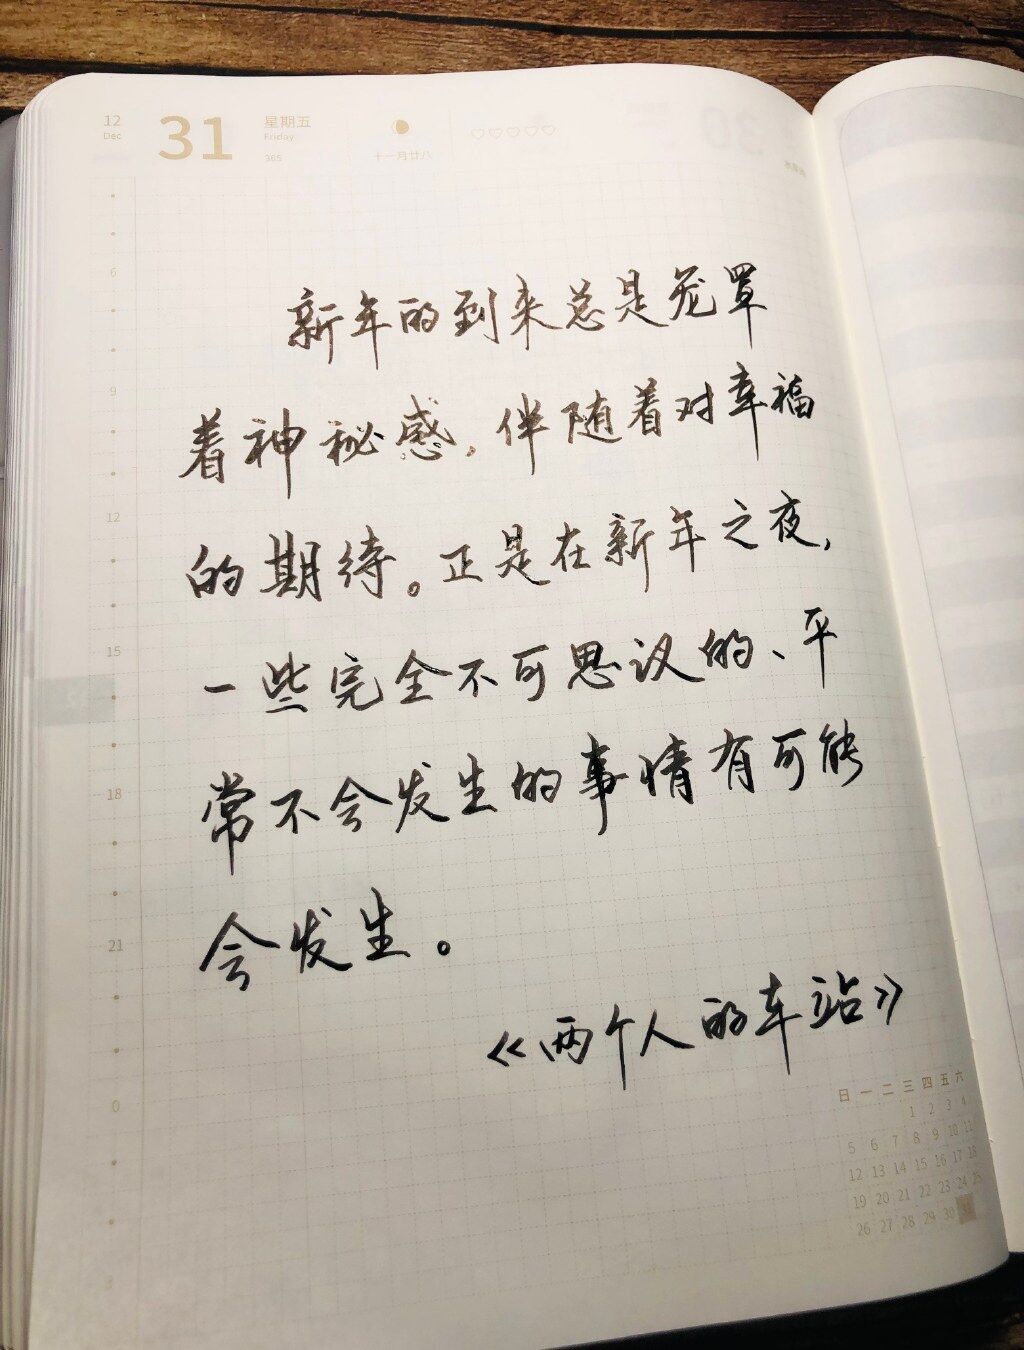 12
Dec
31
星期五
Friday
365
十一月廿八
6
9
12
15
18
21
0
新年的到来总是笼罩
着神秘感，伴随着对幸福
的期待。正是在新年之夜，
一些完全不可思议的、平
常不会发生的事情有可能
会发生。
《两个人的车站》
日 一 二 三 四 五 六
1 2 3 4
5 6 7 8 9 10 11
12 13 14 15 16 17 18
19 20 21 22 23 24 25
26 27 28 29 30 31